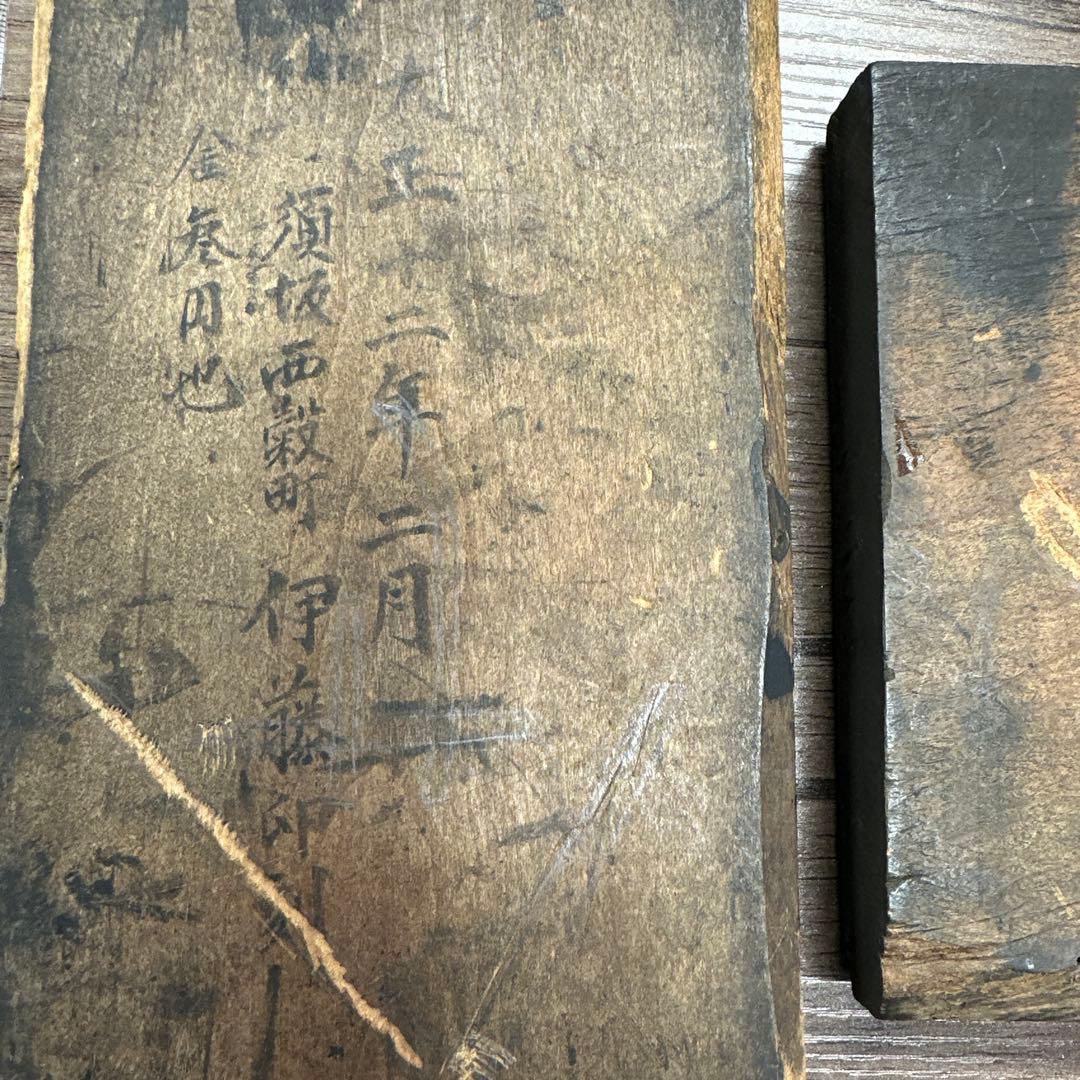 大正十二年二月
須坂西穀町 伊藤印刷
金参円也